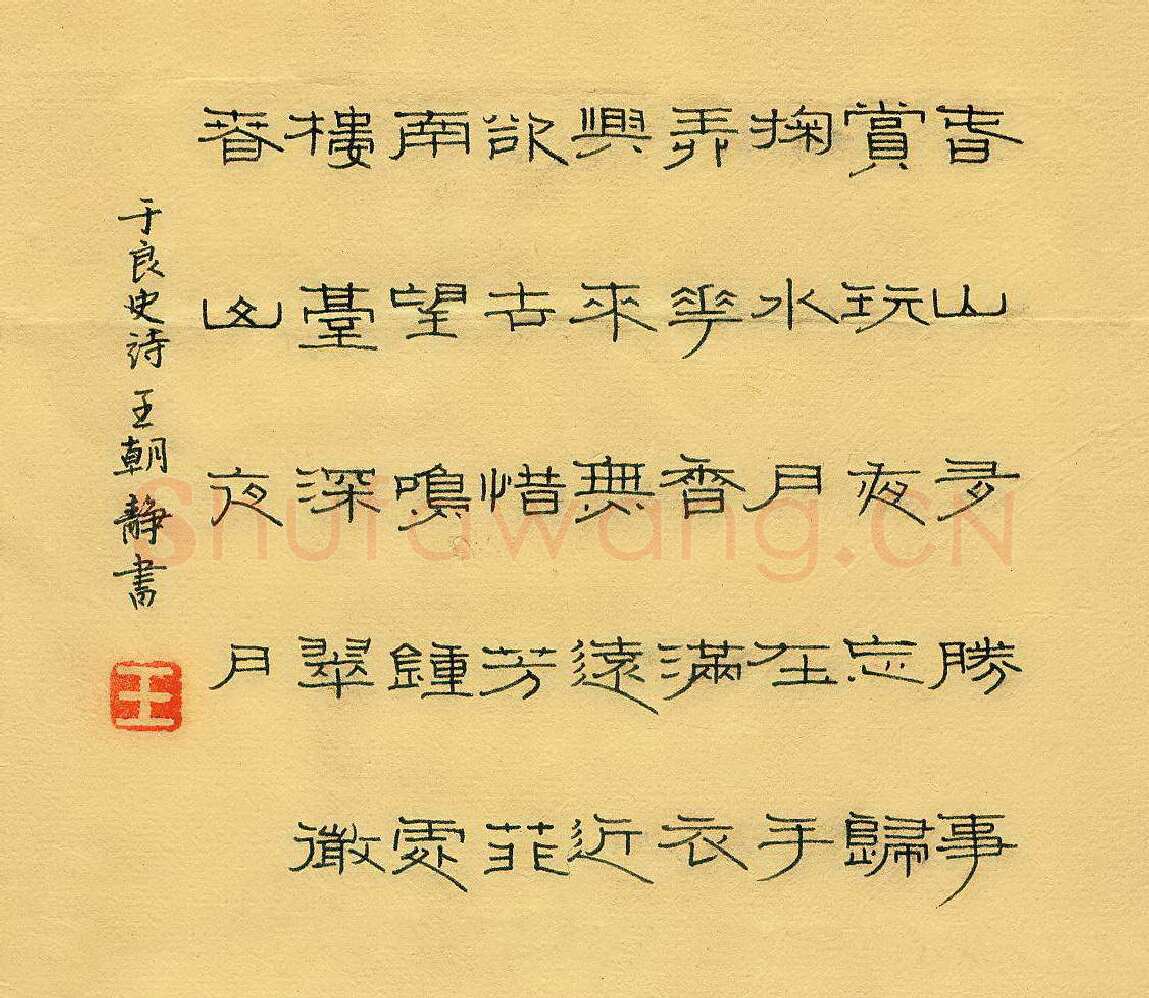 春山多勝事
賞玩夜忘歸
掬水月在手
弄華香滿衣
興來無遠近
欲去惜芳菲
南望鳴鍾處
樓臺深翠微
春山夜月
于良史詩 王朝靜書
王
Shufawang.CN